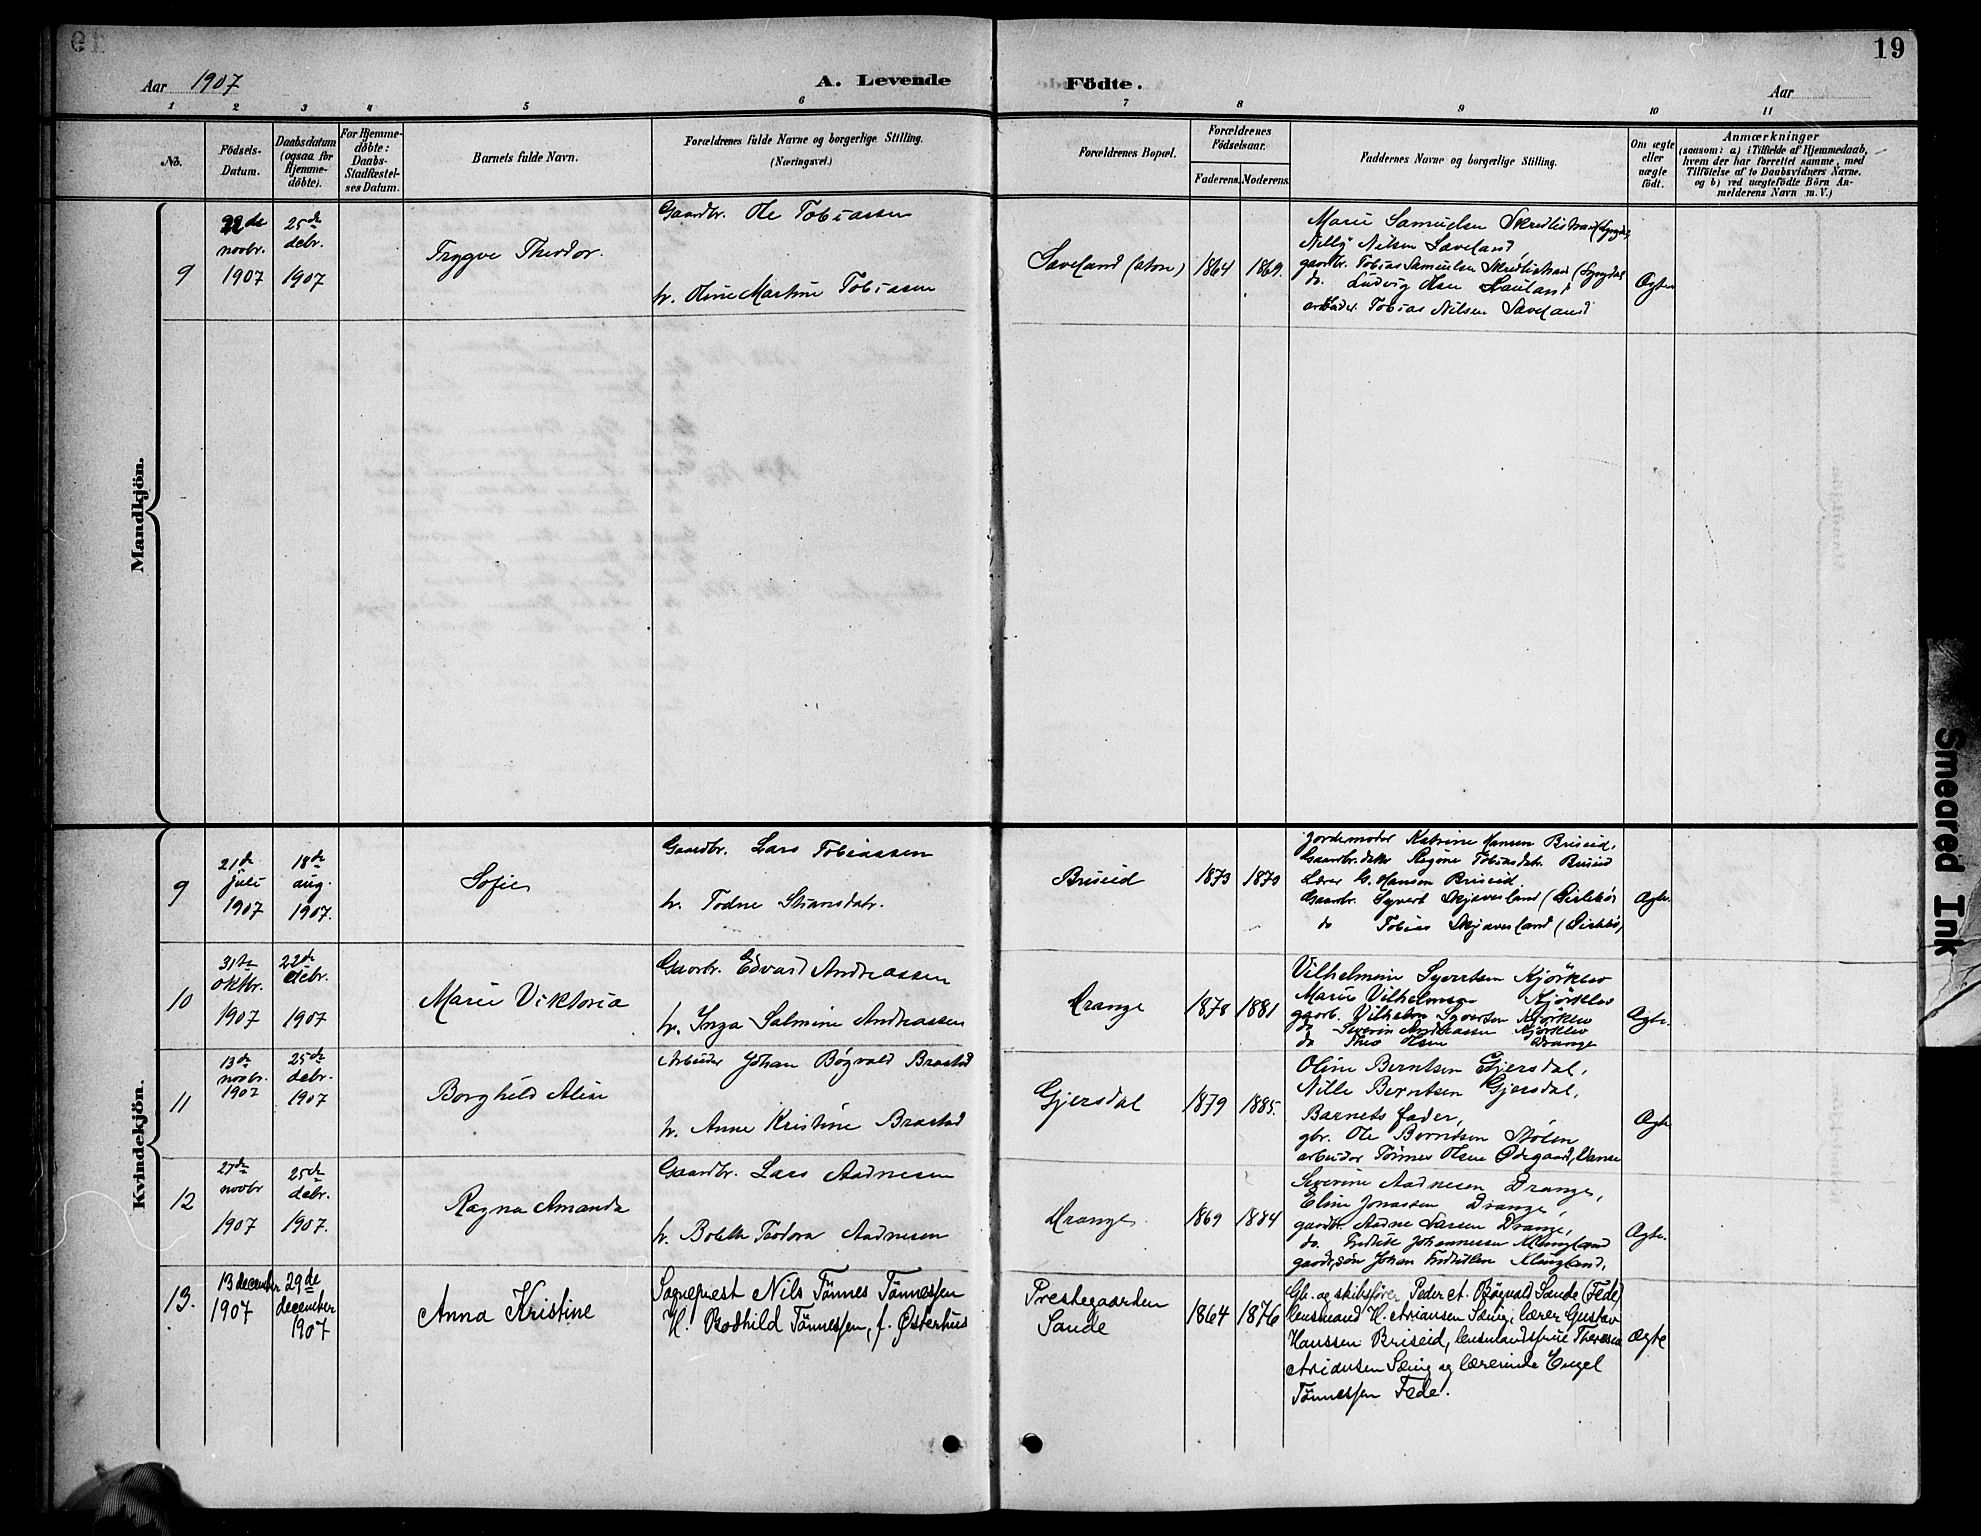 19
Aar 1907 A. Levende Födte. Aar
1 2 3 4 5 6 7 8 9 10 11
No.
Födsels-Datum.
Daabsdatum (ogsaa for Hjemme-döbte).
For Hjemme-döbte: Daabs-Stadfæstel-ses Datum.
Barnets fulde Navn.
Forældrenes fulde Navne og borgerlige Stilling. (Næringsvei.)
Forældrenes Bopæl.
Forældrenes Födselsaar.
Faderens. Moderens.
Faddernes Navne og borgerlige Stilling.
Om ægte eller uægte födt.
Anmærkninger
(saasom: a) i Tilfælde af Hjemmedaab,
hvem der har forrettet samme, med
Tilföielse af to Daabsvidners Navne,
og b) ved uægtefödte Börn An-
melderens Navn m. V.)
Mandkjön.
9
22de novbr. 1907
25de debr. 1907
Trygve Theodor.
Gaardbr. Ole Tobiassen
h. Oline Martine Tobiassen
Saveland (store)
1864 1869.
Marie Samuelsen
Nilsen Saveland
gaardbr. Tobias Samuelsen
do. Ludvig Olsen
arbeider. Tobias Nilsen Saveland
Ægte
Kvindekjön.
9
21de juli 1907
18de aug. 1907.
Sofie
Gaardbr. Lars Tobiassen
h. Todne
Briseid
1873 1870
Jordemoder Katrine Hansen Briseid.
Gaardbr.datter Regine Tobiasdatr. Briseid
Lærer G. Hansen Briseid.
Gaardbr. Syvert Skjævesland
do Tobias Skjævesland
Ægte.
10
31te oktbr. 1907
22de debr. 1907
Marie Viktoria
Gaardbr. Edvard Andreassen
h. Inga Salmine Andreassen
Drange
1878 1881
Vilhelmine Syvertsen Kjörklev
Marie Vilhelmsen Kjörklev
gaardb. Vilhelm Syvertsen Kjörklev
do Severin Andreassen Kjörklev
do Theo Olsen Drange
Ægte.
11
13de novbr. 1907
25de debr. 1907
Borghild Aline
Arbeider Johan Bögvald Brastad
h. Anne Kristine Brastad
Gjersdal
1879 1885.
Oline Berntsen Gjersdal,
Nille Berntsen Gjersdal,
Barnets fader,
gbr. Ole Berntsen Stölen
arbeider Tönnes Olsen Ödegaard, Vanse
Ægte
12
27de novbr 1907
25de debr. 1907.
Ragna Amanda
Gaardbr. Lars Aadnesen
h. Bolette Teodora Aadnesen
Drange
1869 1884
Severine Aadnesen Drange,
Eline Jonassen Drange,
gaardbr. Aadne Larsen Drange,
do. Johannessen Klungland
gaardb.søn Johan Klungland,
Ægte.
13.
13 december 1907
29de december 1907
Anna Kristine
Sogneprest Nils Tönnes Tönnessen
H. Bodhild Tönnessen, f. Østerhus
Prestegaarden Sande
1864 1876
Gb. og skibsfører Peder A. Bögvald Sande (Fede)
lensmand H. Ariansen Sæiig, lærer Gustav
Hanssen Briseid, lensmandsfrue Theresia
Ariansen Sæiig og lærerinde Engel
Tönnessen Fede.
Ægte
Smeared Ink